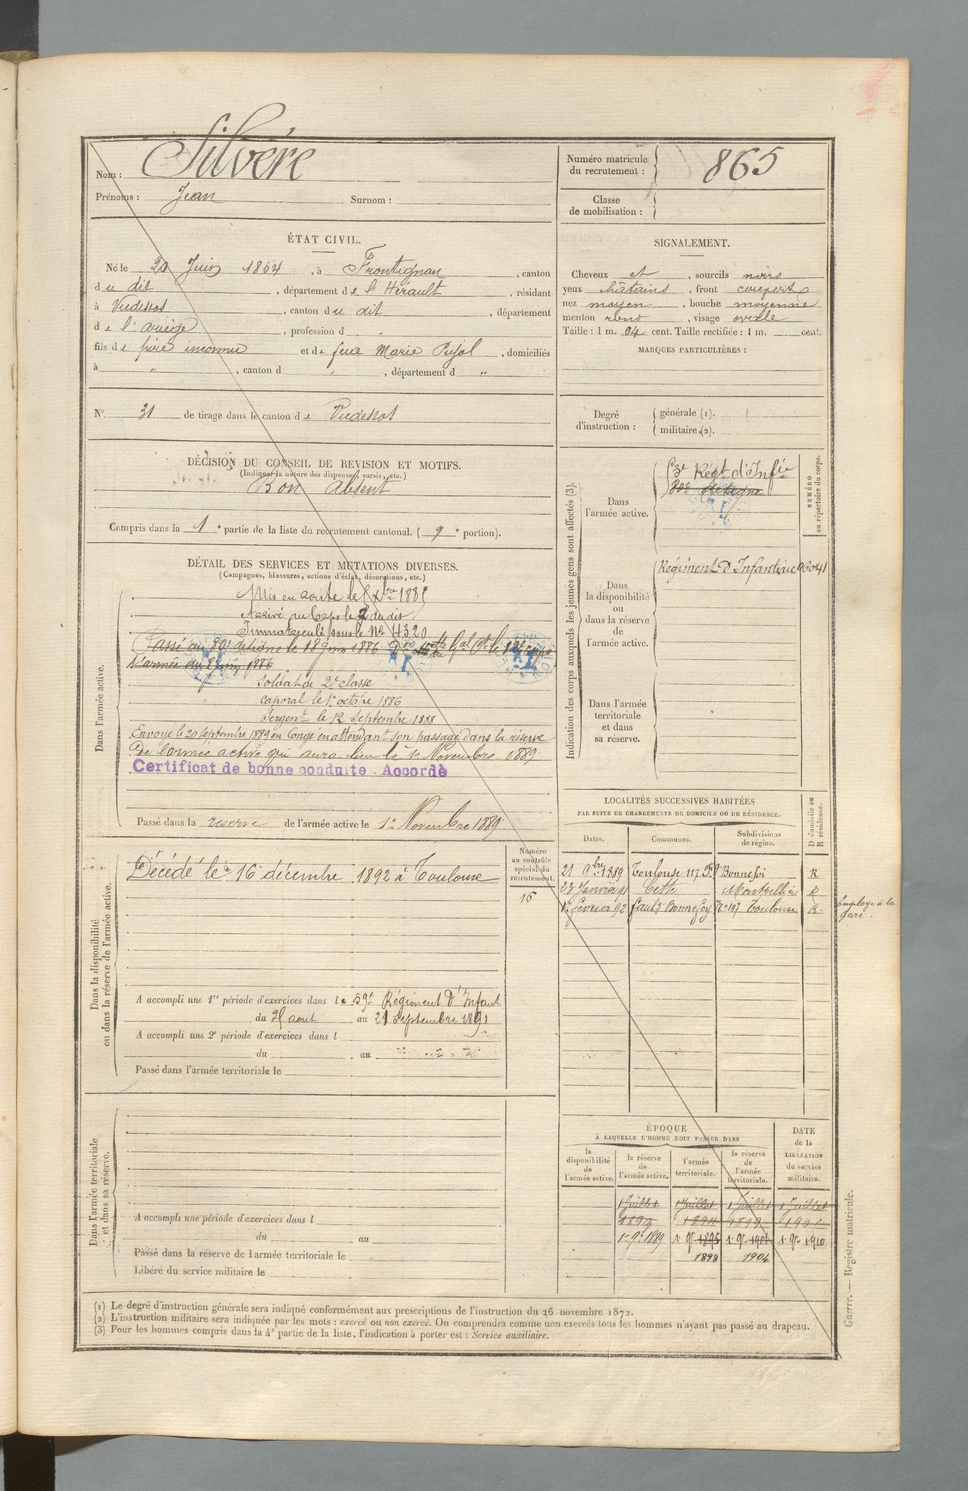 Nom : Silvére
Prénoms : Jean Surnom :
Numéro matricule du recrutement : 865
Classe de mobilisation :
ÉTAT CIVIL.
Né le 20 Juin 1864, à Frontignan, canton
du dit, département de l'Hérault, résidant
à Vicdessos, canton du dit, département
de l'ariège, profession d "
fils de père inconnu et de feue Marie Pujol, domiciliés
à ", canton d ", département d "
N° 31 de tirage dans le canton de Vicdessos
SIGNALEMENT.
Cheveux et, sourcils noirs
yeux châtains, front couvert
nez moyen, bouche moyenne
menton rond, visage ovale
Taille : 1 m. 64 cent. Taille rectifiée : 1 m. cent.
MARQUES PARTICULIÈRES :
Degré d'instruction : générale (1).
militaire (2).
DÉCISION DU CONSEIL DE REVISION ET MOTIFS.
(Indiquer la nature des dispenses, sursis, etc.)
Bon Absent
Compris dans la 1e partie de la liste du recrutement cantonal. (9e portion).
DÉTAIL DES SERVICES ET MUTATIONS DIVERSES.
(Campagnes, blessures, actions d'éclat, décorations, etc.)
Dans l'armée active.
Mis en route le 1885
Arrivé au Corps le 2 du dit
Immatriculé sous le No 4320
Passé au de ligne le 18 1886
1886
Soldat de 2e classe
Caporal le 1er octobre 1886
Sergent le 12 Septembre 1888
Envoyé le 20 septembre 1889 en Congé en attendant son passage dans la réserve
De l'armée active qui aura lieu le 1er Novembre 1889
Certificat de bonne conduite Accordé
Passé dans la reserve de l'armée active le 1er Novembre 1889
Indication des corps auxquels les jeunes gens sont affectés (3).
NUMÉRO au répertoire du corps.
Dans l'armée active.
Régt d'Infie
Dans la disponibilité ou dans la réserve de l'armée active.
Régiment D'Infanterie
Dans l'armée territoriale et dans sa réserve.
LOCALITÉS SUCCESSIVES HABITÉES
PAR SUITE DE CHANGEMENTS DE DOMICILE OU DE RÉSIDENCE.
Dates. Communes. Subdivisions de région. D domicile ou R résidence.
21 9bre 1889 Toulouse 117 Fg Bonnefoi R
27 Janvier 91 Cette Montpellier R
1er février 92 faubg Bonnefoy No 107 Toulouse R.
Employé à la gare.
Dans la disponibilité ou dans la réserve de l'armée active.
Numéro au contrôle spécial du recrutement.
16
Décédé le 16 décembre 1892 à Toulouse
A accompli une 1re période d'exercices dans le 59e Régiment d'Infant
du 25 aout au 21 septembre 1891
A accompli une 2e période d'exercices dans l
du au
Passé dans l'armée territoriale le
Dans l'armée territoriale et dans sa réserve.
A accompli une période d'exercices dans l
du au
Passé dans la réserve de l'armée territoriale le
Libéré du service militaire le
ÉPOQUE
À LAQUELLE L'HOMME DOIT PASSER DANS
la disponibilité de l'armée active. la réserve de l'armée active. l'armée territoriale. la réserve de l'armée territoriale.
DATE de la LIBÉRATION du service militaire.
1 Juillet 1 Juillet 1 Juillet 1 Juillet
1er 9bre 1889 1er 9bre 1895 1er 9bre 1901 1er 9bre 1910
1898 1904
(1) Le degré d'instruction générale sera indiqué conformément aux prescriptions de l'instruction du 26 novembre 1872.
(2) L'instruction militaire sera indiquée par les mots : exercé ou non exercé. On comprendra comme non exercés tous les hommes n'ayant pas passé au drapeau.
(3) Pour les hommes compris dans la 4e partie de la liste, l'indication à porter est : Service auxiliaire.
Guerre. — Registre matricule.